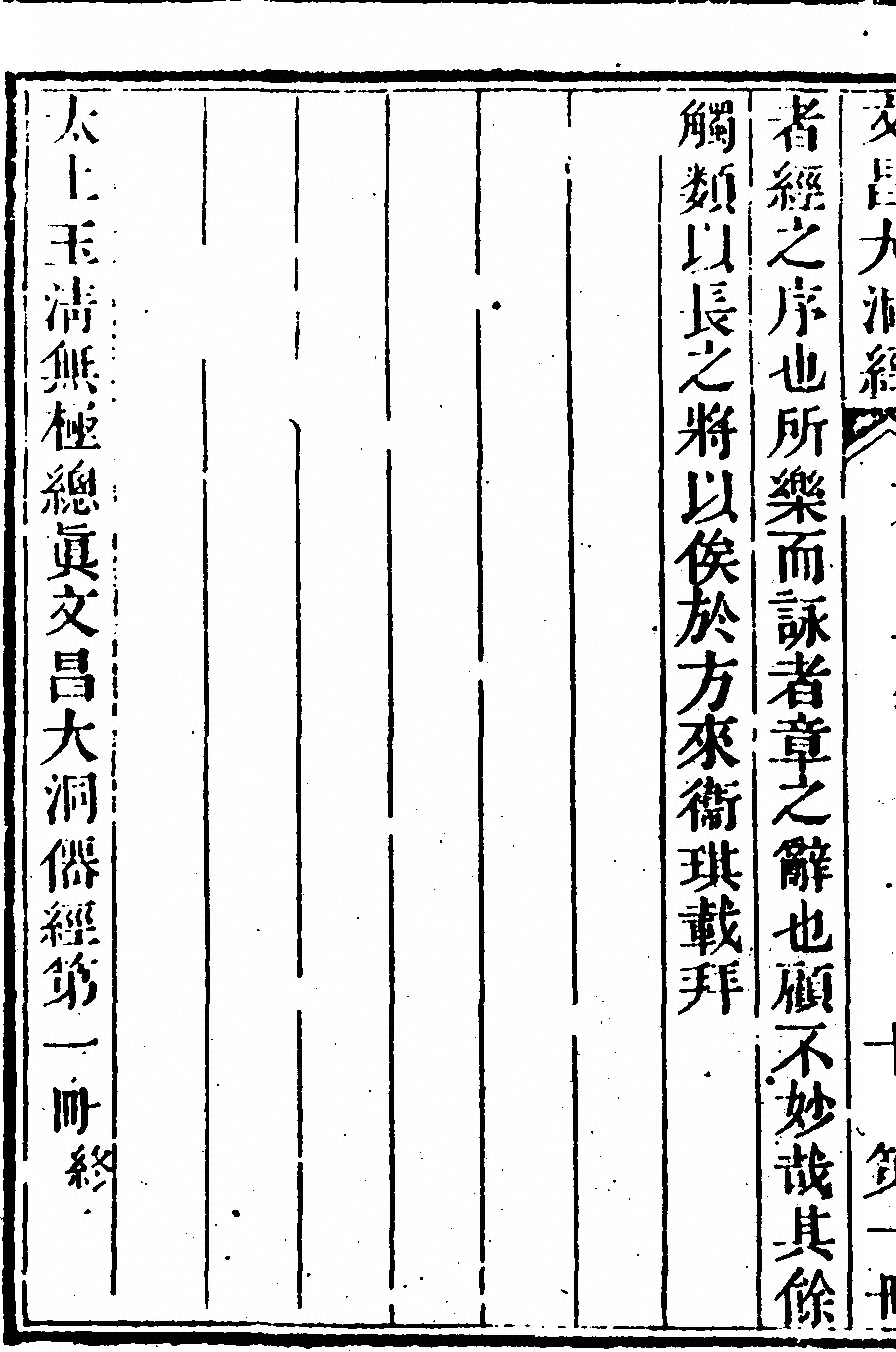 文昌大洞經
十
第一冊
者經之序也所樂而詠者章之辭也顧不妙哉其餘
觸類以長之將以俟於方來衞琪載拜
太上玉淸無極總眞文昌大洞僊經第一冊終